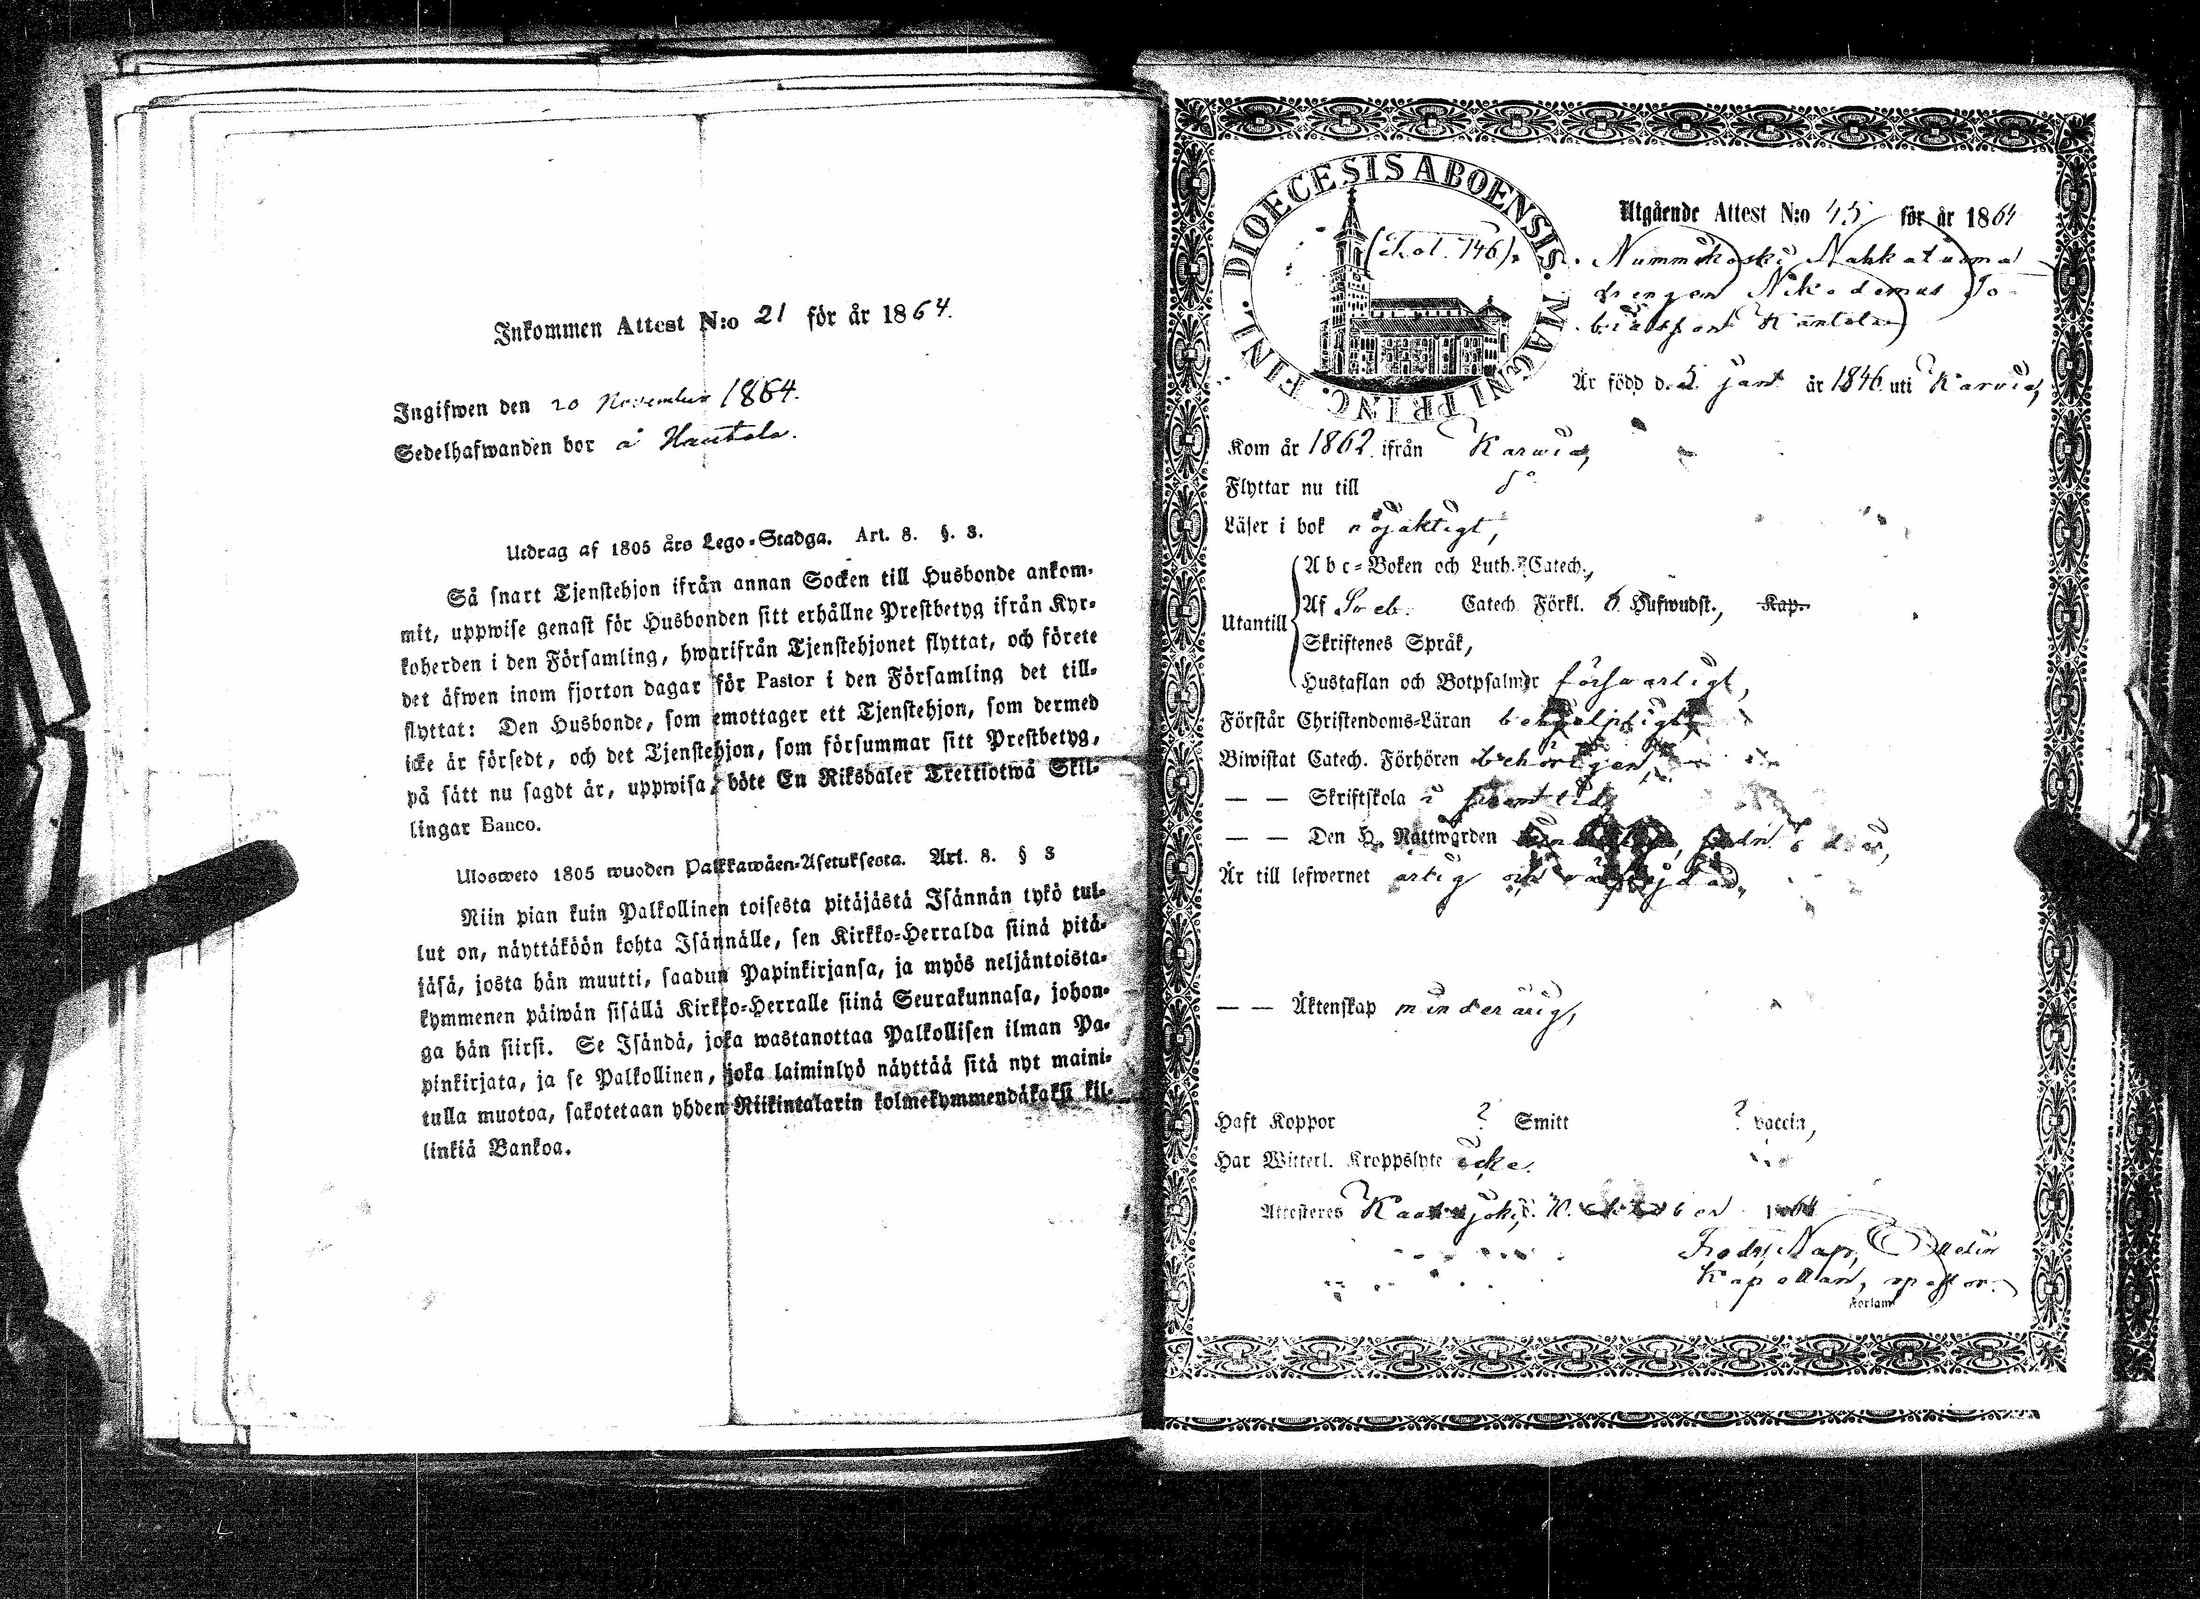 Inkommen Attest N:o 21 för år 1864.
Ingifwen den 20 November 1864.
Sedelhafwanden bor å Hautala.
Utdrag af 1805 års Lego-Stadga. Art. 8. §. 3.
Så snart Tjenstehjon ifrån annan Socken till Husbonde ankom-
mit, uppwise genast för Husbonden sitt erhållne Prestbetyg ifrån Kyr-
koherden i den Församling, hwarifrån Tjenstehjonet flyttat, och förete
det äfwen inom fjorton dagar för Pastor i den Församling det till-
flyttat: Den Husbonde, som emottager ett Tjenstehjon, som dermed
icke är försedt, och det Tjenstehjon, som försummar sitt Prestbetyg,
på sätt nu sagdt är, uppwisa, böte En Riksdaler Trettiotwå Skil-
lingar Banco.
Ulosweto 1805 wuoden Palkkawäen-Asetuksesta. Art. 8. § 3
Niin pian kuin Palkollinen toisesta pitäjästä Isännän tykö tul-
lut on, näyttäköön kohta Isännälle, sen Kirkko-Herralda siinä pitä-
jäsä, josta hän muutti, saadun Papinkirjansa, ja myös neljäntoista-
kymmenen päiwän sisällä Kirkko-Herralle siinä Seurakunnasa, johon-
ga hän siirsi. Se Isändä, joka wastanottaa Palkollisen ilman Pa-
pinkirjata, ja se Palkollinen, joka laiminlyö näyttää sitä nyt maini-
tulla muotoa, sakotetaan yhden Riikintalarin kolmekymmendäkaksi kil-
linkiä Bankoa.
DIOECESIS ABOENSIS. MAGNI PRINC. FINL.
(Fol. 146).
Utgående Attest N:o 45 för år 1864
Nummikoski Nahkatuoma
drengen Nikodemus To-
biasson Kantola
Är född d. 5 jan. år 1846 uti Karvia,
Kom år 1862 ifrån Karvia,
Flyttar nu till do
Läser i bok nöjaktigt,
Abc-Boken och Luth. Catech.,
Utantill Af Sveb. Catech Förkl. 6 Hufwudst., Kap.
Skriftenes Språk,
Hustaflan och Botpsalmer försvarligt,
Förstår Christendoms-Läran behjelpligt,
Biwistat Catech. Förhören behörigen,
— — Skriftskola i
— — Den H. Nattwarden
Är till lefwernet artig och
— — Äktenskap minderårig,
Haft Koppor ? Smitt ? vaccin,
Har Witterl. Kroppslyte icke.
Attesteres 1864
Kapellan,
Förlam